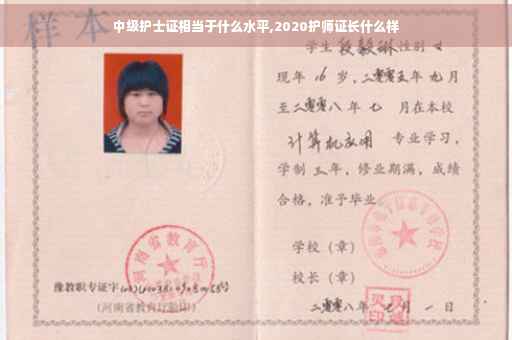 中级护士证相当于什么水平,2020护师证长什么样
样本
学生 段毅琳 性别 女
现年 16 岁,二零零五年 九 月
至二零零八年 七 月在本校
计算机应用 专业学习,
学制 三 年,修业期满,成绩
合格,准予毕业
学校(章)
校长(章)
二零零八年 七 月 一 日
河南省教育厅
豫教职专证字
(河南省教育厅验印)